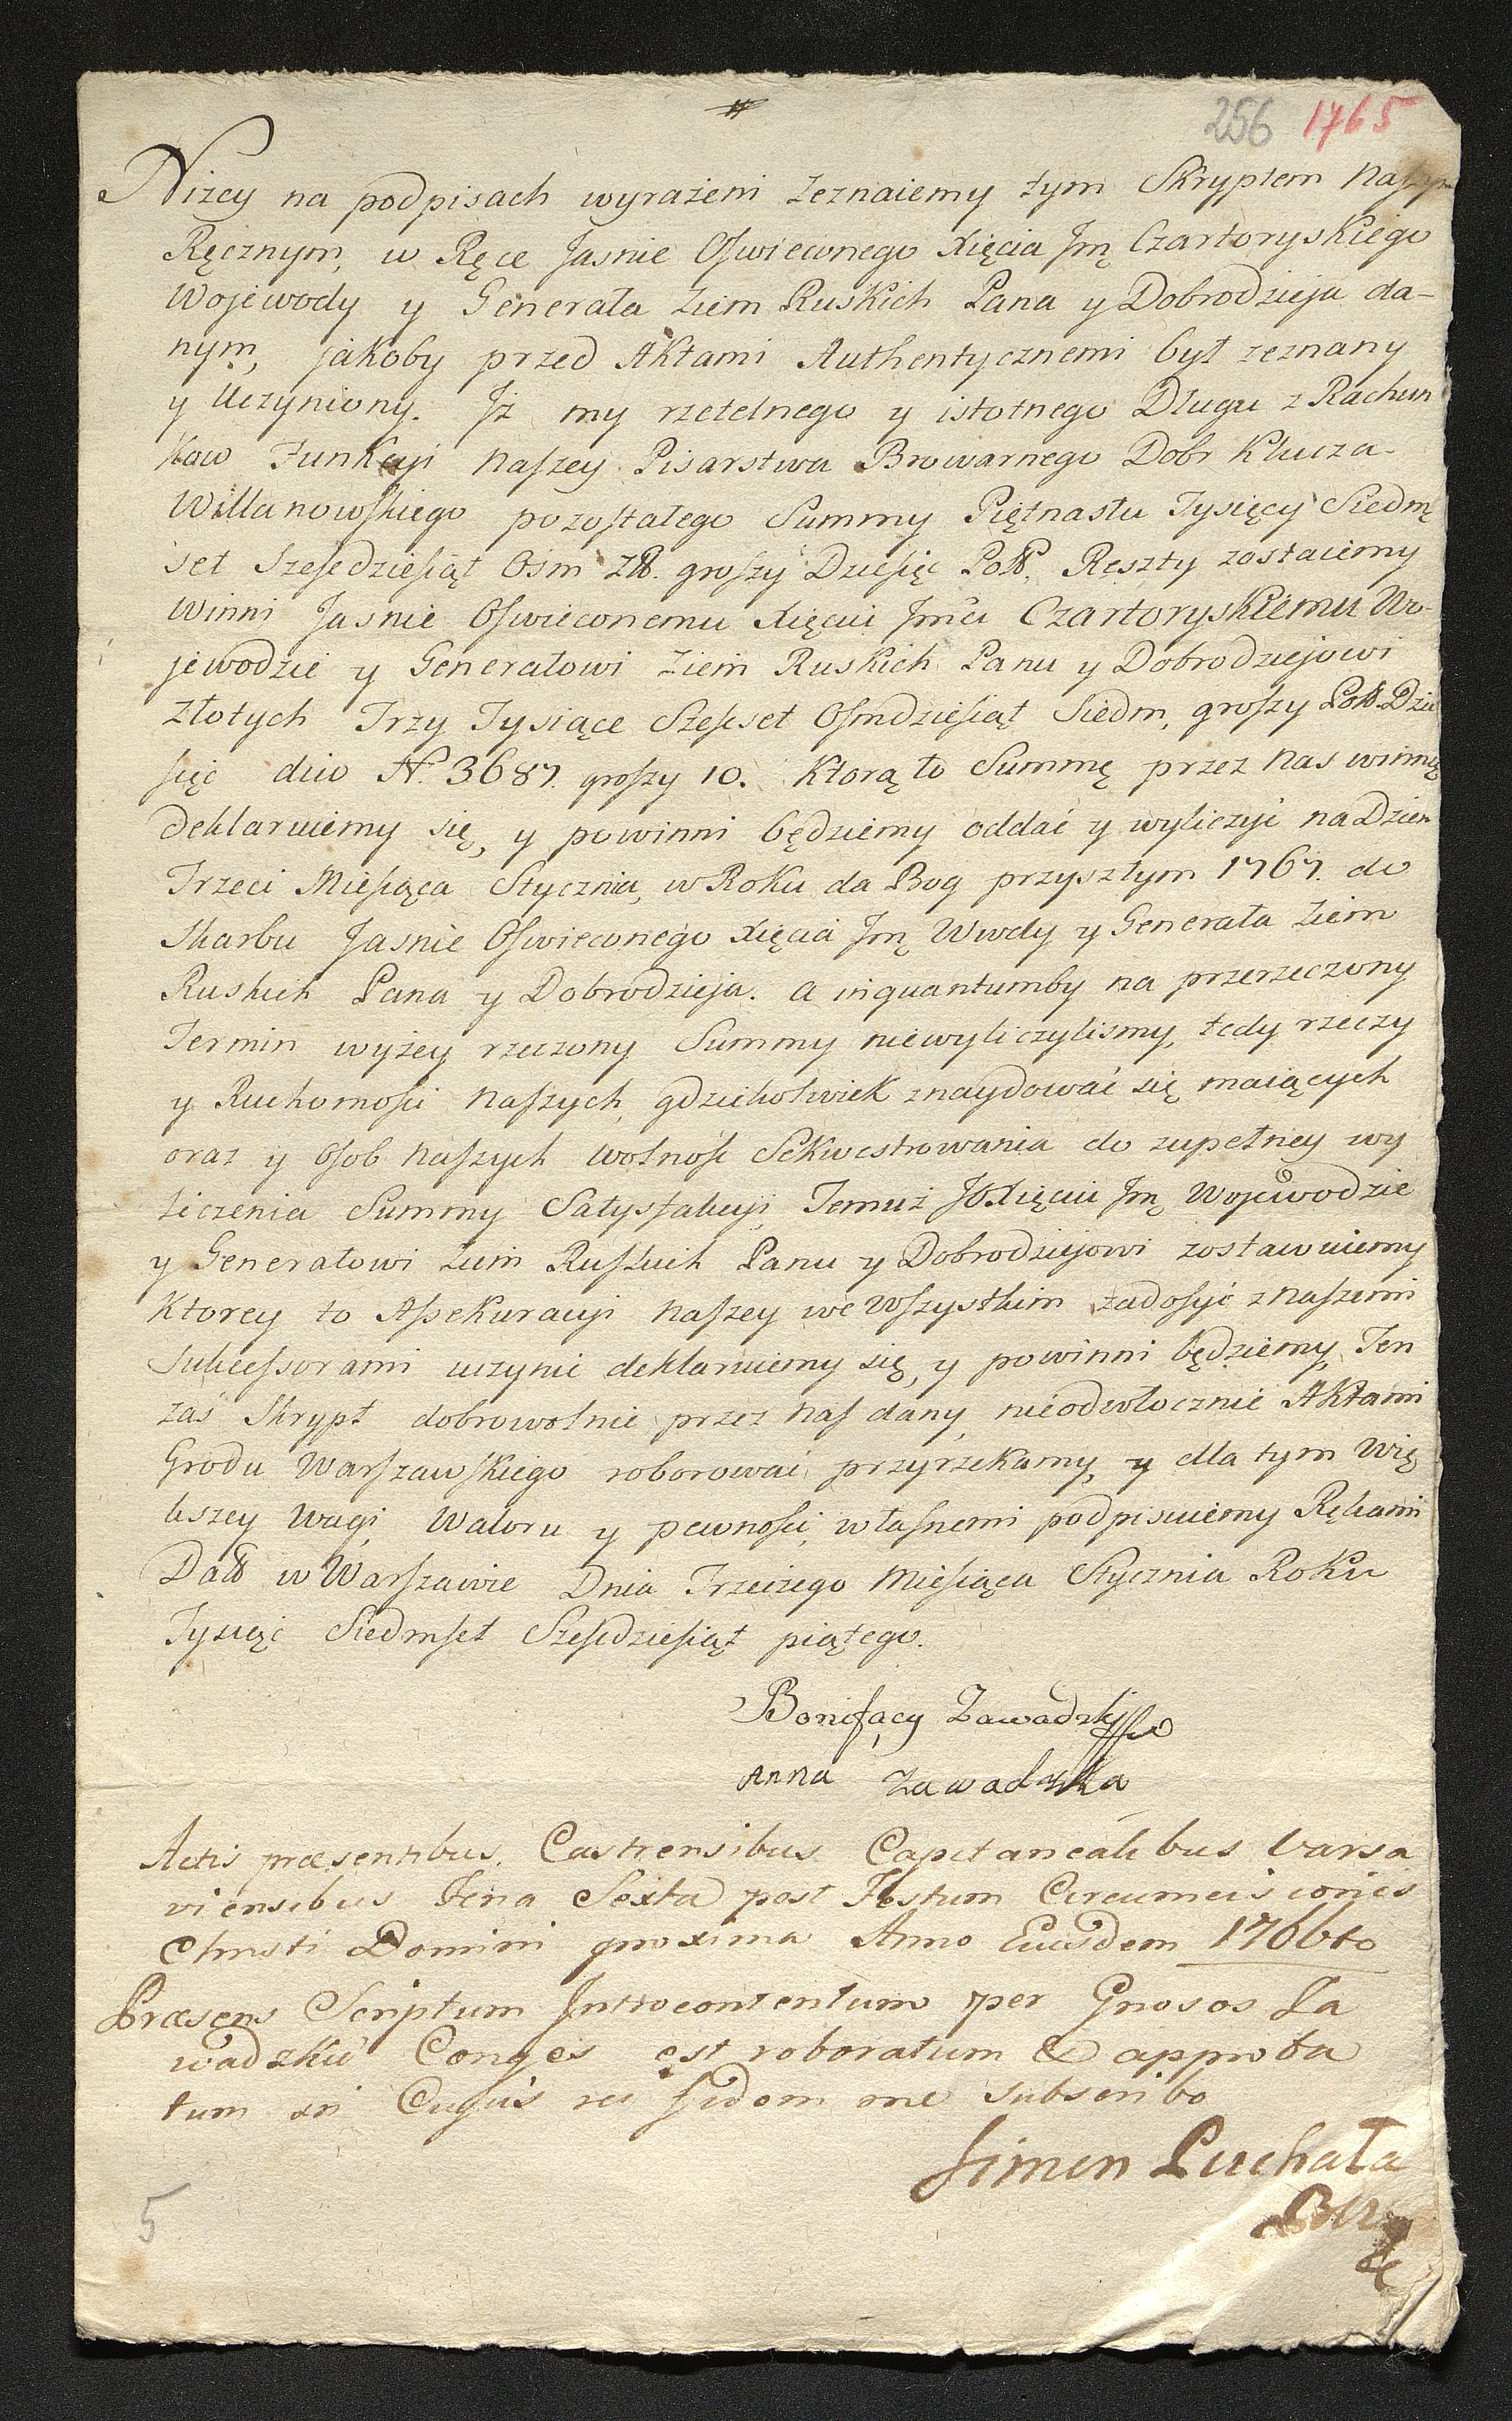 256 1765
Niżey na podpisach wyrażeni zeznaiemy tym Skryptem naszym
Ręcznym, w Ręce Jasnie Oswieconego Xięcia Jmę Czartoryskiego
Wojewody y Generała Ziem Ruskich Pana y Dobrodzieja da-
nym, jakoby przed Aktami Authentycznemi był zeznany
y uczyniony. Jż my rzetelnego y istotnego Długu z Rachun
kow Funkcyi naszey Pisarstwa Browarnego Dobr Klucza
Willanowskiego pozostałego Summy Piętnastu Tysięcy Siedm
set Szescdziesiąt Osm Zll. groszy Dziesięc Poll. Reszty zostaiemy
winni Jasnie Oswieconemu Xięciu Jmci Czartoryskiemu Wo-
jewodzie y Generałowi Ziem Ruskich Panu y Dobrodziejowi
Złotych Trzy Tysiące Szescset Osmdziesiąt Siedm, groszy Poll. Dzie
sięc dico N. 3687. groszy 10. Ktorą to Summę przez nas winną
deklaruiemy się, y powinni będziemy oddać y wyliczyć na Dzien
Trzeci Miesiąca Stycznia, w Roku da Bog przyszłym 1767. do
Skarbu Jasnie Oswieconego Xięcia Jmę Wwdy y Generała Ziem
Ruskich Pana y Dobrodzieja. a inquantumby na przerzeczony
Termin wyżey rzeczony Summy niewyliczylismy, tedy rzeczy
y Ruchomosci naszych, gdziekolwiek znaydować się maiących
oraz y Osob naszych wolnosc Sekwestrowania do zupełney wy
liczenia Summy Satysfakcyi, Temuż JO Xięciu Jmę Wojewodzie
y Generałowi Ziem Ruskich Panu y Dobrodziejowi zostawuiemy
Ktorey to Assekuracyi naszey we wszystkim zadosyć z naszemi
Sukcessorami uczynic deklaruiemy się, y powinni będziemy, Ten
zaś Skrypt dobrowolnie przez nas dany, nieodwłocznie Aktami
Grodu Warszawskiego roborować przyrzekamy, y dla tym Wię
kszey Wagi, Waloru y pewnosci, własnemi podpisuiemy Rękami
Datt w Warszawie Dnia Trzeciego Miesiąca Stycznia Roku
Tysiąc Siedmset Szescdziesiąt piątego.
Bonifacy Zawadzki
Anna Zawadzka
Actis præsentibus Castrensibus Capitanealibus Varsa
viensibus Feria Sexta post Festum Circumcisionis
Christi Domini proxima Anno Ejusdem 1766to
Præsens Scriptum Introcontentum per Gnosos Za
wadzkie Conges est roboratum & approba
tum in Cujus rei fidem me subscribo
Simon Puchała
5